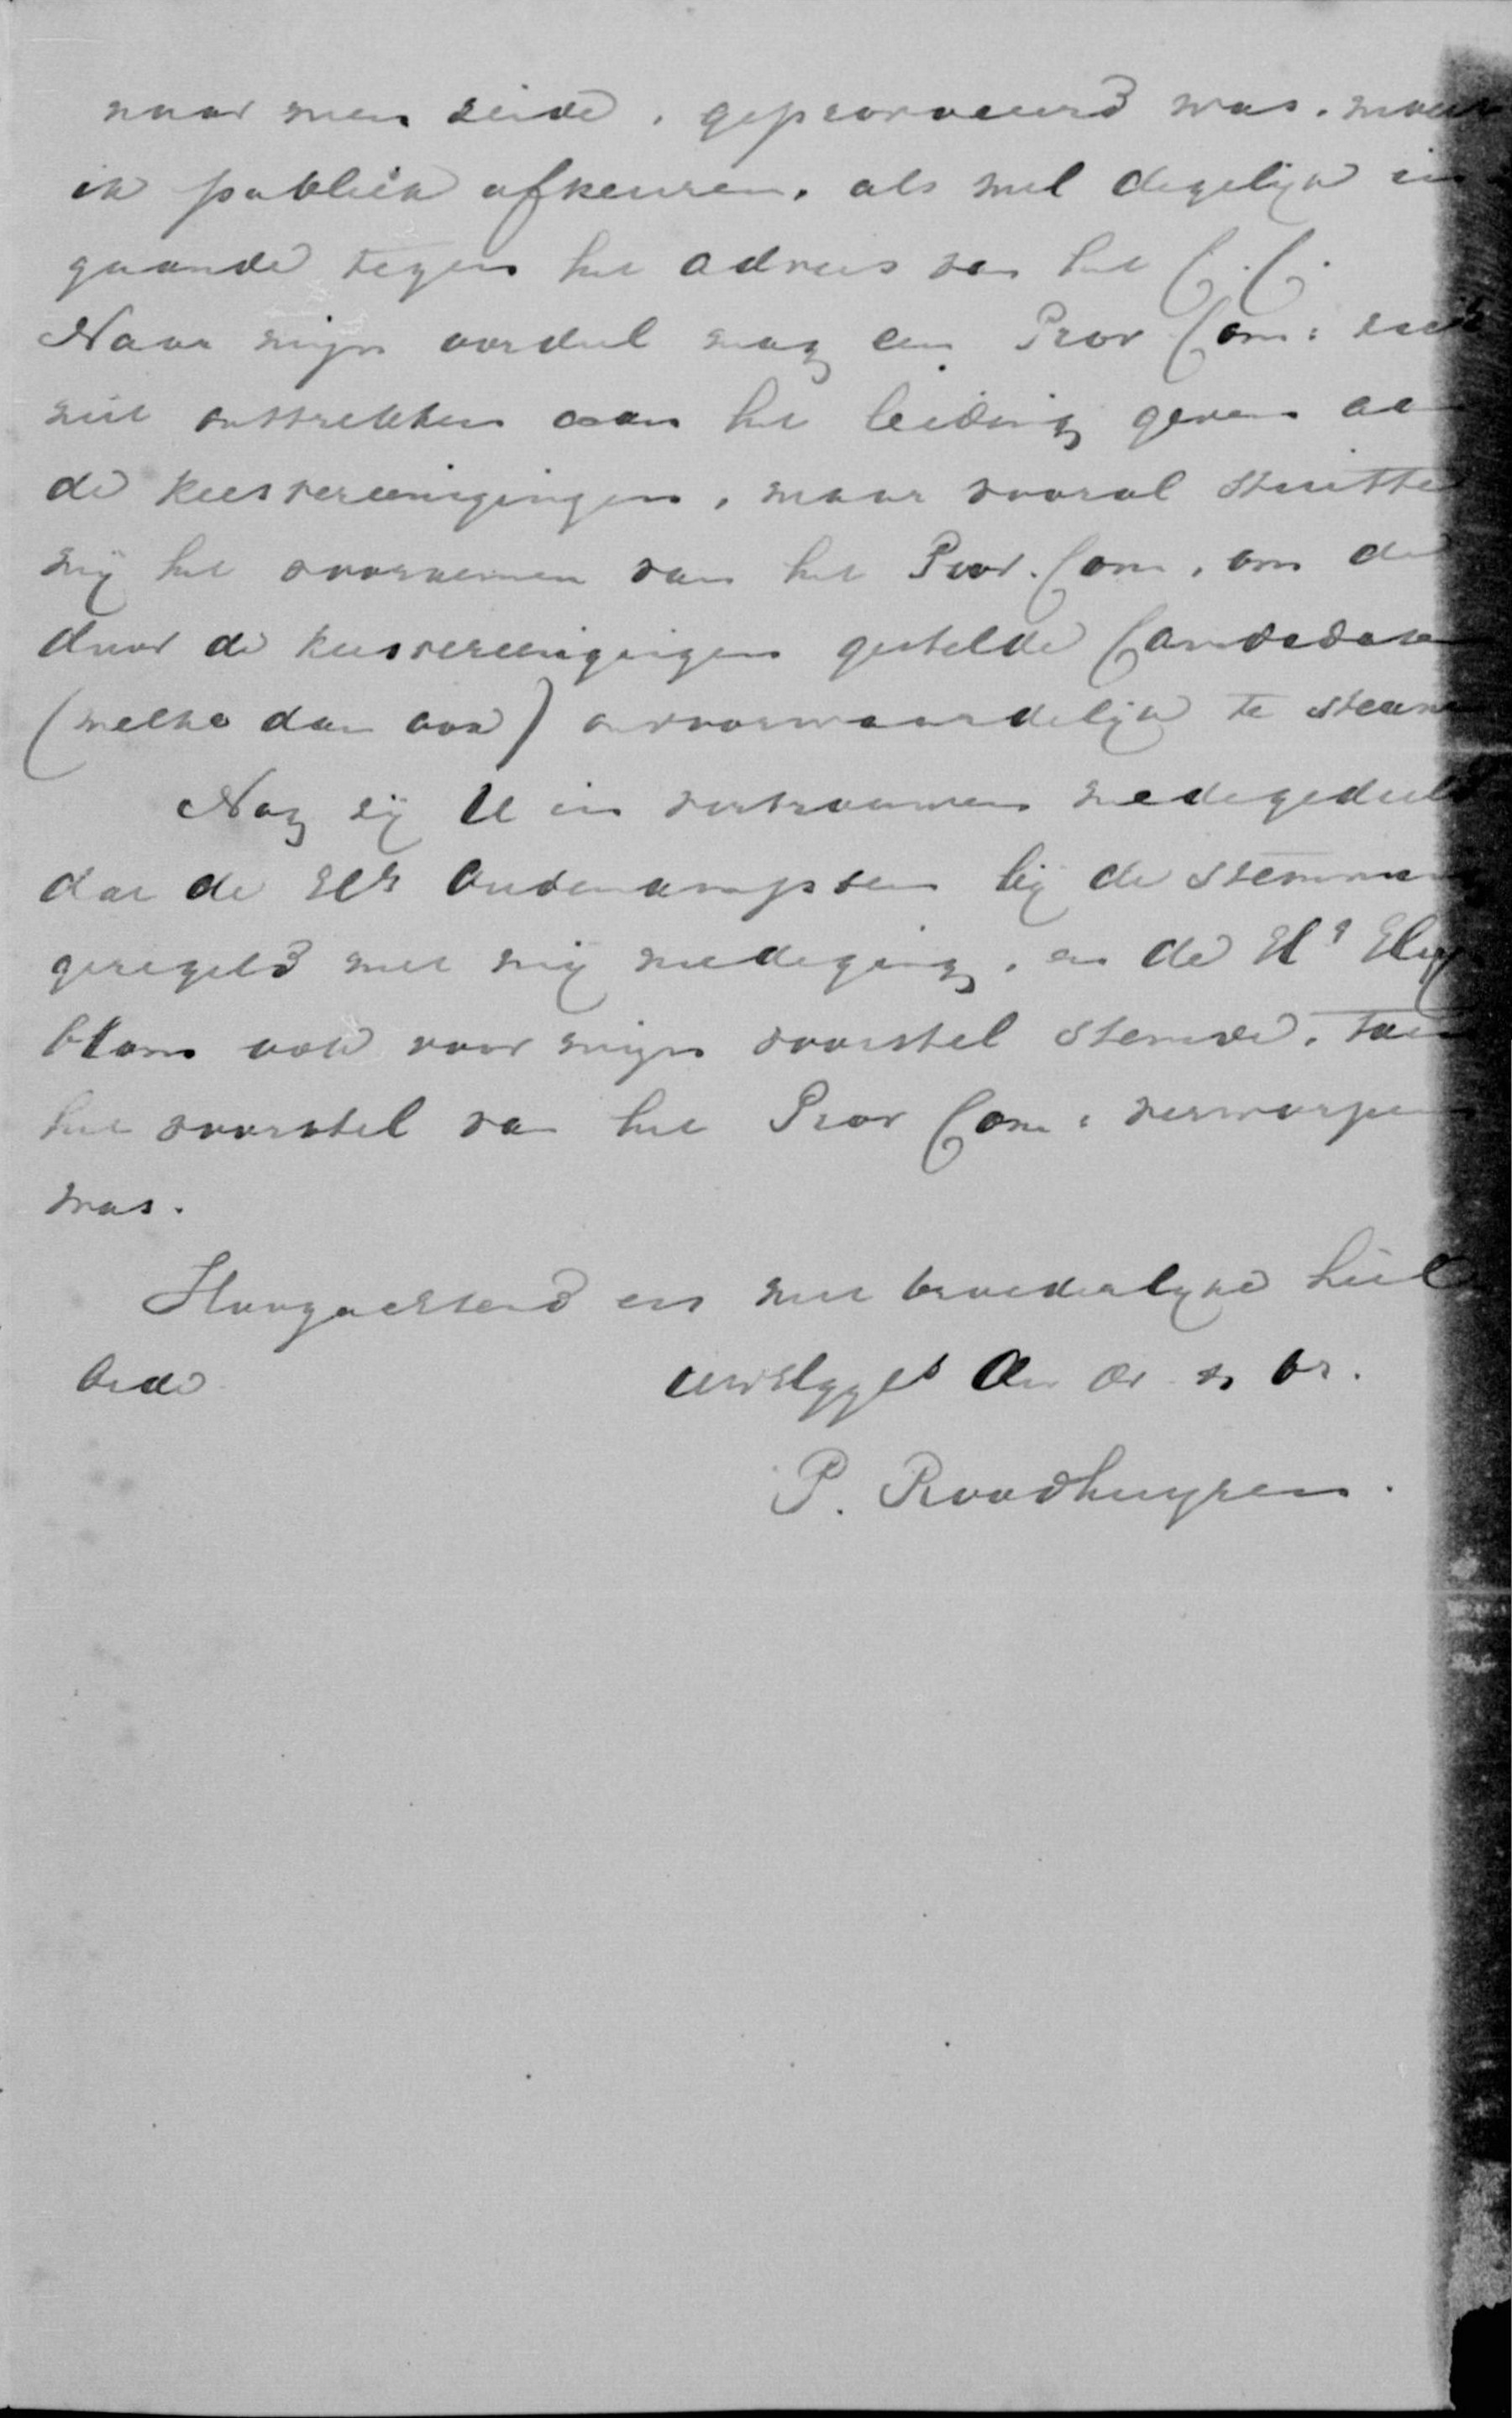 naar men zeide, geprovoceerd was, moest
ik publiek afkeuren, als wel degelijk in
gaande tegen het advies van het C.C.
Naar mijn oordeel mag een Prov Com: zich
niet onttrekken aan het leiding geven aan
de kiesvereenigingen, maar vooral stuitte
mij het voornemen van het Prov. Com, om de
door de kiesvereenigingen gestelde Candidaten
(welke dan ook) onvoorwaardelijk te steunen
Nog zij U in vertrouwen medegedeeld
dat de Hr Oudenampsen bij de stemmen
geregeld met mij medeging, en de Hr
ook voor mijn voorstel stemde, toen
het voorstel van het Prov Com: verworpen
was.
Hoogachtend en met broederlyke heil
bede
Uw dw en br.
P. Roodhuyzen.